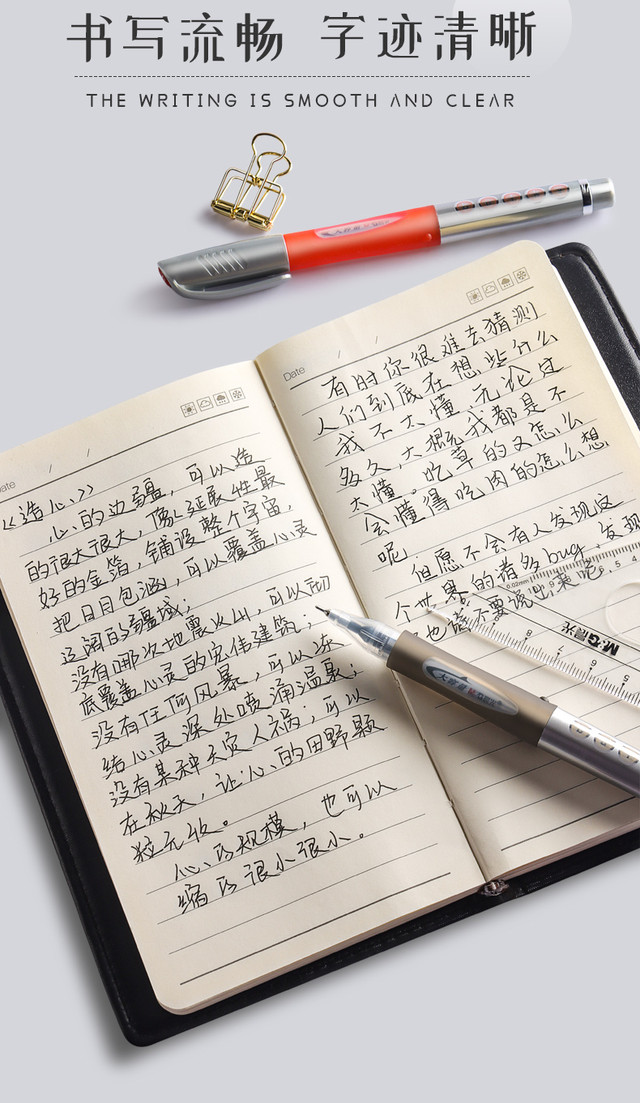 书写流畅 字迹清晰
THE WRITING IS SMOOTH AND CLEAR
Date / /
有时你很难去猜测
人们到底在想些什么
我不太懂 无论过
多久,大概我都是不
太懂。吃草的又怎么
会懂得吃肉的怎么想
呢
但愿不会有人发现这
个世界的诸多bug,发现
也请不要说出来呢
M&G晨光
大容量
Date / /
《造心》
心的边疆,可以造
的很大很大,像延展性最
好的金箔,铺设整个宇宙,
把日月包涵,可以覆盖心灵
辽阔的疆域;
没有哪次地震火山,可以彻
底覆盖心灵的宏伟建筑;
没有任何风暴,可以冻
结心灵深处喷涌温泉;
没有某种天灾人祸;可以
在秋天,让心的田野颗
粒无收。
心的规模,也可以
缩的很小很小。